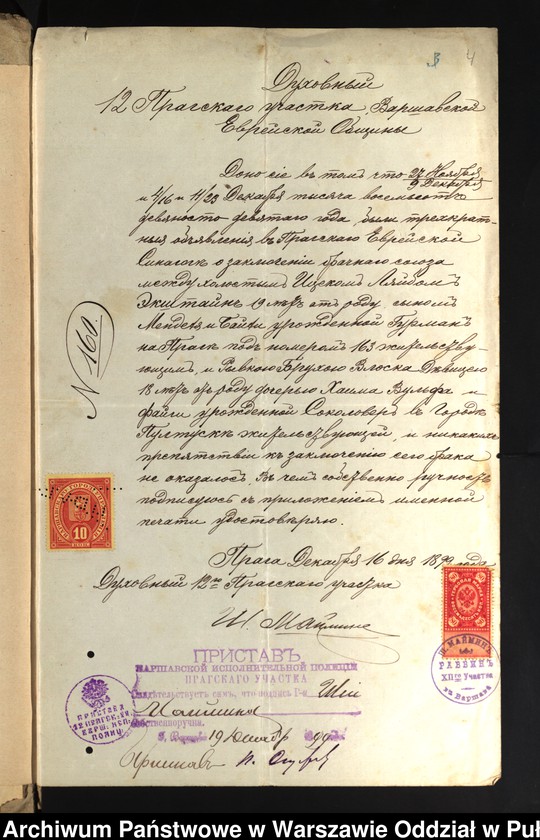 3 4
Духовный
12 Прагскаго участка Варшавской
Еврейской Общины
Доносіе въ томъ что 27 Ноября
9 Декабря
и 4/16 и 11/23 Декабря тысяча восемьсотъ
девяносто девятаго года были троекрат-
ныя объявленія въ Прагскаго Еврейской
Синагогѣ о заключеніи брачнаго союза
между холостымъ Ицекомъ Ляйбомъ
19 лѣтъ отъ роду, сыномъ
Мендля и урожденной Гурманъ
на Прагѣ подъ номеромъ 163 жительству-
ющимъ, и Рывкою Брухою
18 лѣтъ отъ роду дочерью Хаима Вульфа и
Файги урожденной Соколоверъ въ Городѣ
Пултускѣ жительствующей, и никакихъ
препятствій къ заключенію сего брака
не оказалось. Въ чемъ собственно ручность
подписуюсь съ приложеніемъ именной
печати удостовѣряю.
N 160.
10
КОП
Прага Декабря 16 дня 1899 года
Духовный 12го Прагскаго участка
Ш. Маймина
ПРИСТАВЪ
ВАРШАВСКОЙ ИСПОЛНИТЕЛЬНОЙ ПОЛИЦІИ
ПРАГСКАГО УЧАСТКА
Свидѣтельствуетъ симъ, что подпись Г-я Шіи
Маймина
собственоручна.
Г. Варшава 19 99
Приставъ
ПРИСТАВЪ
12 ПРАГСК. УЧ.
ВАРШ. ИСП.
ПОЛИЦ.
Ш. МАЙМИНЪ
РАВВИНЪ
XIIго Участка
въ Варшавѣ
Archiwum Państwowe w Warszawie Oddział w Puł